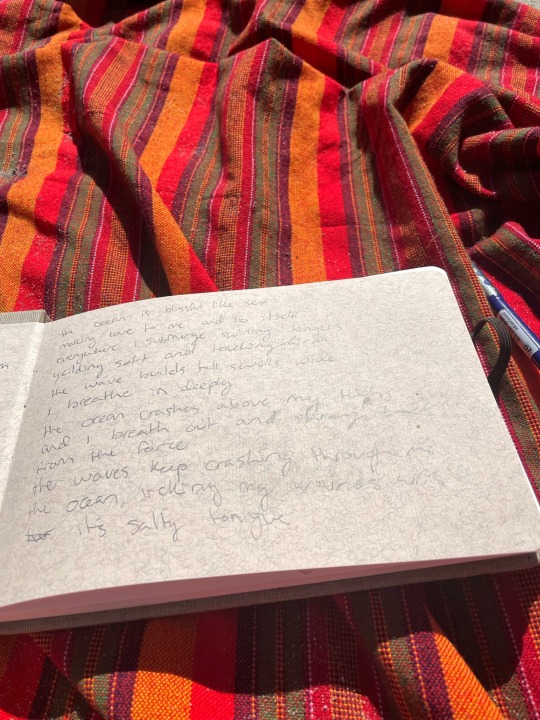 the ocean is blissful like sex
making love to me and to itself
everywhere I submerge
yielding salt and
the wave builds tall,
I breathe in deeply
the ocean crashes above my
and I breath out and
from the force
the waves keep crashing through me
the ocean, licking my wounds with
its salty tongue